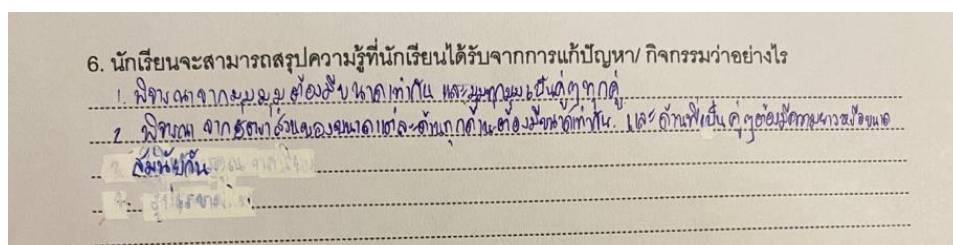 6. นักเรียนจะสามารถสรุปความรู้ที่นักเรียนได้รับจากการแก้ปัญหา/ กิจกรรมว่าอย่างไร
1. พิจารณาจากมุม ต้องมีขนาดเท่ากัน และมุมทุกมุมเป็นคู่ๆทุกคู่
2. พิจารณา จากอัตราส่วนของขนาดแต่ละด้านทุกด้านต้องมีขนาดเท่ากัน. และ ด้านที่เป็น คู่ๆต้องมีความยาวหรือขนาด
กัน